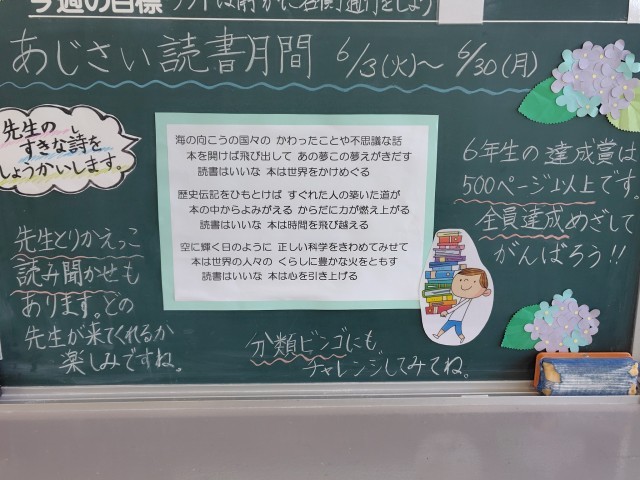 今週の目標 ろう下は静かに右側通行をしよう
あじさい読書月間 6/3(火)～6/30(月)
先生の
すきな詩を
しょうかいします。
海の向こうの国々の かわったことや不思議な話
本を開けば飛び出して あの夢この夢えがきだす
読書はいいな 本は世界をかけめぐる
歴史伝記をひもとけば すぐれた人の築いた道が
本の中からよみがえる からだに力が燃え上がる
読書はいいな 本は時間を飛び越える
空に輝く日のように 正しい科学をきわめてみせて
本は世界の人々の くらしに豊かな火をともす
読書はいいな 本は心を引き上げる
6年生の達成賞は
500ページ以上です。
全員達成めざして
がんばろう!!
先生とりかえっこ
読み聞かせも
あります。どの
先生が来てくれるか
楽しみですね。
分類ビンゴにも
チャレンジしてみてね。